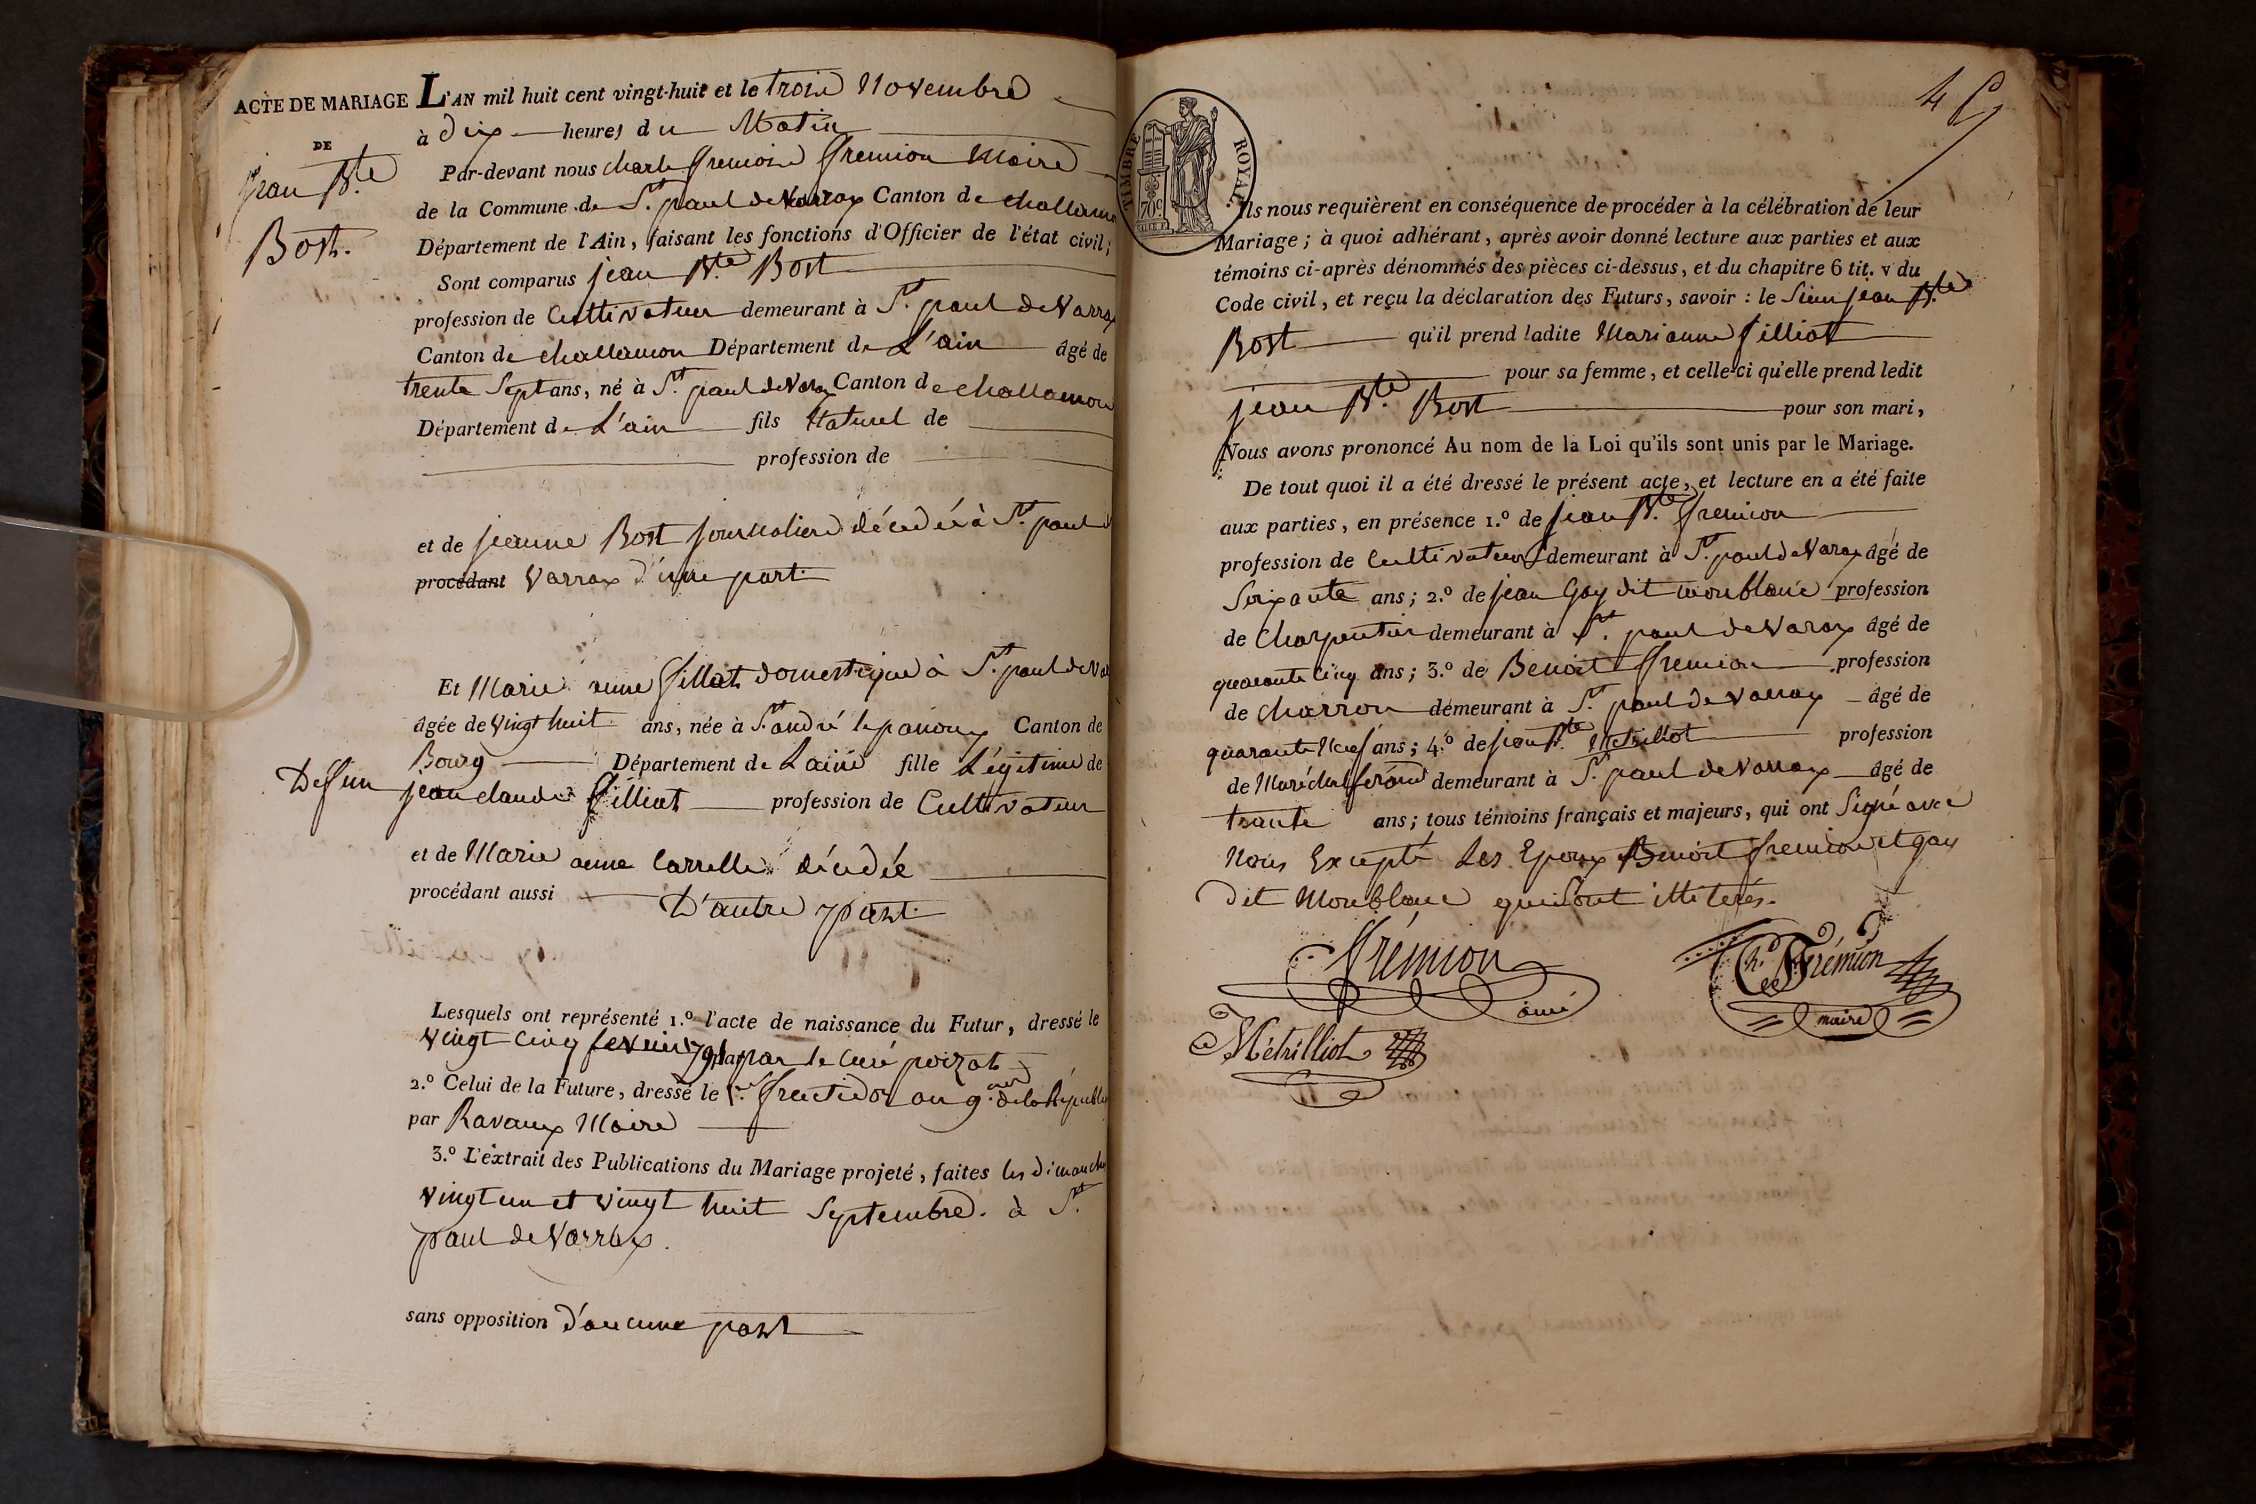 ACTE DE MARIAGE
DE
jean Bte
Bost.
L'AN mil huit cent vingt-huit et le trois Novembre
à dix heures du Matin
Par-devant nous Charle fremion Maire
de la Commune de St. paul de Varrax Canton de challamon
Département de l'Ain, faisant les fonctions d'Officier de l'état civil;
Sont comparus jean Bte Bost
profession de Cultivateur demeurant à St. paul de Varrax
Canton de challamon Département de L'ain âgé de
trente Sept ans, né à St. paul de Varax Canton de challamon
Département de L'ain fils Naturel de
profession de
et de jeanne Bost journaliere décédée à St. paul de
procédant Varrax d'une part.
Et Marie anne filliat domestique à St. paul de Var
âgée de Vingt huit ans, née à St. andré le panoux Canton de
Bourg Département de Laine fille Légitime de
Defun jean claude filliat profession de Cultivateur
et de Marie anne Carrelle décédée
procédant aussi D'autre part.
Lesquels ont représenté 1.º l'acte de naissance du Futur, dressé le
Vingt Cinq fevrier 1791 par le curé poizat
2.º Celui de la Future, dressé le 1.er fructidor an 9. de la Républ
par Ravaux Maire
3.º L'extrait des Publications du Mariage projeté, faites les dimanche
Vingt un et Vingt huit Septembre. à St.
paul de Varrax.
sans opposition d'aucune part
46
TIMBRE ROYAL
70 c.
Ils nous requièrent en conséquence de procéder à la célébration de leur
Mariage; à quoi adhérant, après avoir donné lecture aux parties et aux
témoins ci-après dénommés des pièces ci-dessus, et du chapitre 6 tit. v du
Code civil, et reçu la déclaration des Futurs, savoir : le Sieur jean Bte
Bost qu'il prend ladite Marianne filliat
pour sa femme, et celle-ci qu'elle prend ledit
jean Bte Bost pour son mari,
Nous avons prononcé Au nom de la Loi qu'ils sont unis par le Mariage.
De tout quoi il a été dressé le présent acte, et lecture en a été faite
aux parties, en présence 1.º de jean Bte fremion
profession de Cultivateur demeurant à St. paul de Varax âgé de
Soixante ans; 2.º de jean Gay dit monblanc profession
de Charpentier demeurant à St. paul de Varax âgé de
quarante Cinq ans; 3.º de Benoit fremion profession
de Charron demeurant à St. paul de Varrax âgé de
quarante Neuf ans; 4.º de jean Bte Metrillot profession
de Maréchal ferand demeurant à St. paul de Varrax âgé de
trante ans; tous témoins français et majeurs, qui ont Signé avec
Nous Excepté Les Epoux Benoit fremion et gay
dit Monblanc qui sont illiterés.
frémion
ainé
Ch. Frémion
maire
Métrilliot